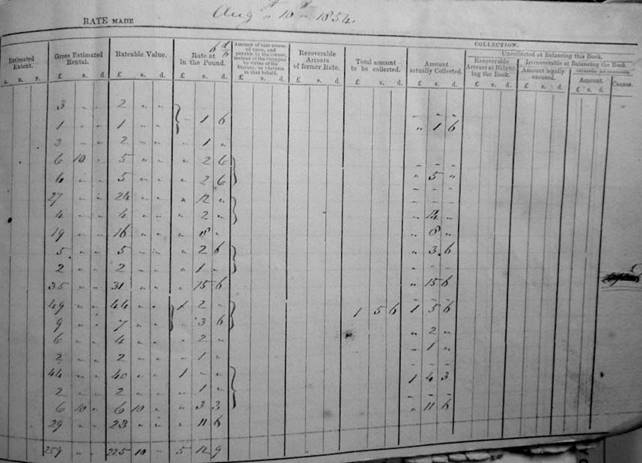 Aug 10 1854
RATE MADE
COLLECTION.
Estimated Extent. Gross Estimated Rental. Rateable Value. Rate at 6d In the Pound. Recoverable Arrears of former Rate. Total amount to be collected. Amount actually Collected. Uncollected at Balancing this Book.
Amount legally excused. Amount. Causes.
A. R. P. £ s. d. £ s. d. £ s. d. £ s. d. £ s. d. £ s. d. £ s. d. £ s. d. £ s. d.
3 " " 2 " "
1 " " 1 " " " 1 6 " 1 6
2 " " 2 " " " 1 "
6 10 " 5 " " " 2 6
6 " " 5 " " " 2 6 " 5 "
27 " " 24 " " " 12 "
4 " " 4 " " " 2 " " 14 "
19 " " 16 " " " 8 " " 8 "
5 " " 5 " " " 2 6 " 3 6
2 " " 2 " " " 1 "
35 " " 31 " " " 15 6 " 15 6
49 " " 44 " " 1 2 " 1 5 6 1 5 6
9 " " 7 " " " 3 6
6 " " 4 " " " 2 " " 2 "
2 " " 2 " " " 1 " " 1 "
44 " " 40 " " 1 " "
2 " " 2 " " " 1 " 1 4 3
6 10 " 6 10 " " 3 3
29 " " 23 " " " 11 6 " 11 6
259 225 10 " 5 12 9